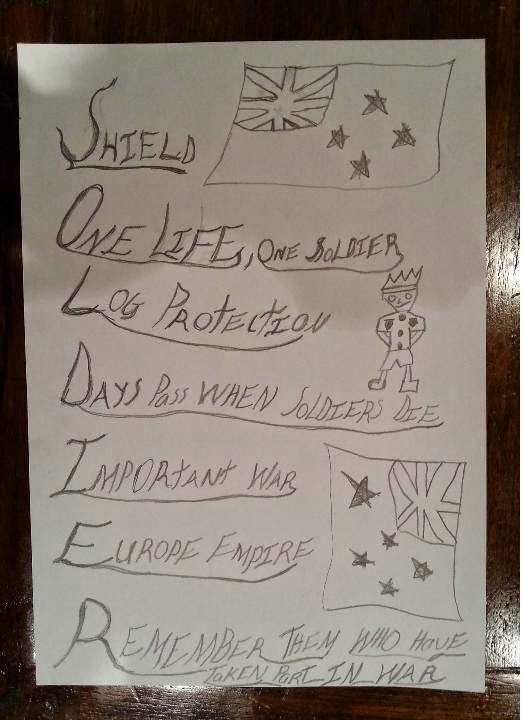 SHIELD
ONE LIFE, ONE SOLDIER
LOG PROTECTION
DAYS PASS WHEN SOLDIERS DIE
IMPORTANT WAR
EUROPE EMPIRE
REMEMBER THEM WHO HAVE
TAKEN PART IN WAR